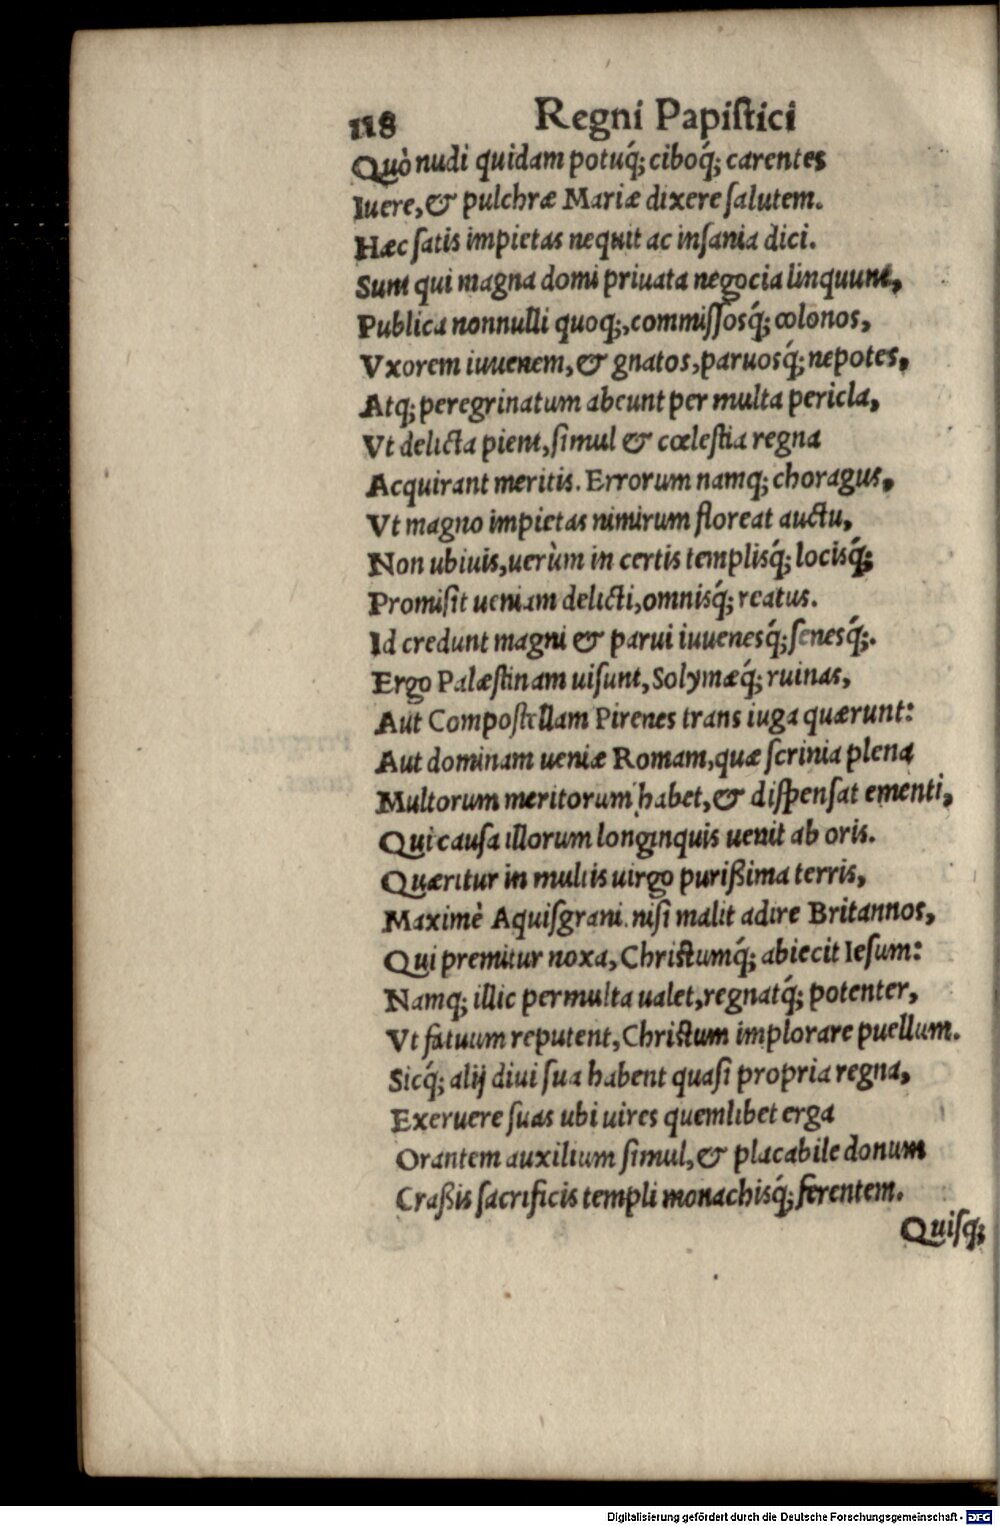 118 Regni Papistici
Quò nudi quidam potuq́; ciboq́; carentes
Iuere, & pulchræ Mariæ dixere ſalutem.
Hæc ſatis impietas nequit ac inſania dici.
Sunt qui magna domi priuata negocia linquunt,
Publica nonnulli quoq;, commiſſosq́; colonos,
Vxorem iuuenem, & gnatos, paruosq́; nepotes,
Atq; peregrinatum abeunt per multa pericla,
Vt delicta pient, ſimul & cœleſtia regna
Acquirant meritis. Errorum namq; choragus,
Vt magno impietas nimirum floreat auctu,
Non ubiuis, uerùm in certis templisq́; locisq́;
Promiſit ueniam delicti, omnisq́; reatus.
Id credunt magni & parui iuuenesq́; ſenesq́;.
Ergo Palæſtinam uiſunt, Solymæq́; ruinas,
Aut Compoſtellam Pirenes trans iuga quærunt:
Aut dominam ueniæ Romam, quæ ſcrinia plena
Multorum meritorum habet, & diſpenſat ementi,
Qui cauſa illorum longinquis uenit ab oris.
Quæritur in multis uirgo purißima terris,
Maximè Aquiſgrani. niſi malit adire Britannos,
Qui premitur noxa, Chriſtumq́; abiecit Ieſum:
Namq; illic permulta ualet, regnatq́; potenter,
Vt fatuum reputent, Chriſtum implorare puellum.
Sicq́; alij diui ſua habent quaſi propria regna,
Exeruere ſuas ubi uires quemlibet erga
Orantem auxilium ſimul, & placabile donum
Craßis ſacrificis templi monachisq́; ferentem.
Quiſq;
Digitalisierung gefördert durch die Deutsche Forschungsgemeinschaft - DFG